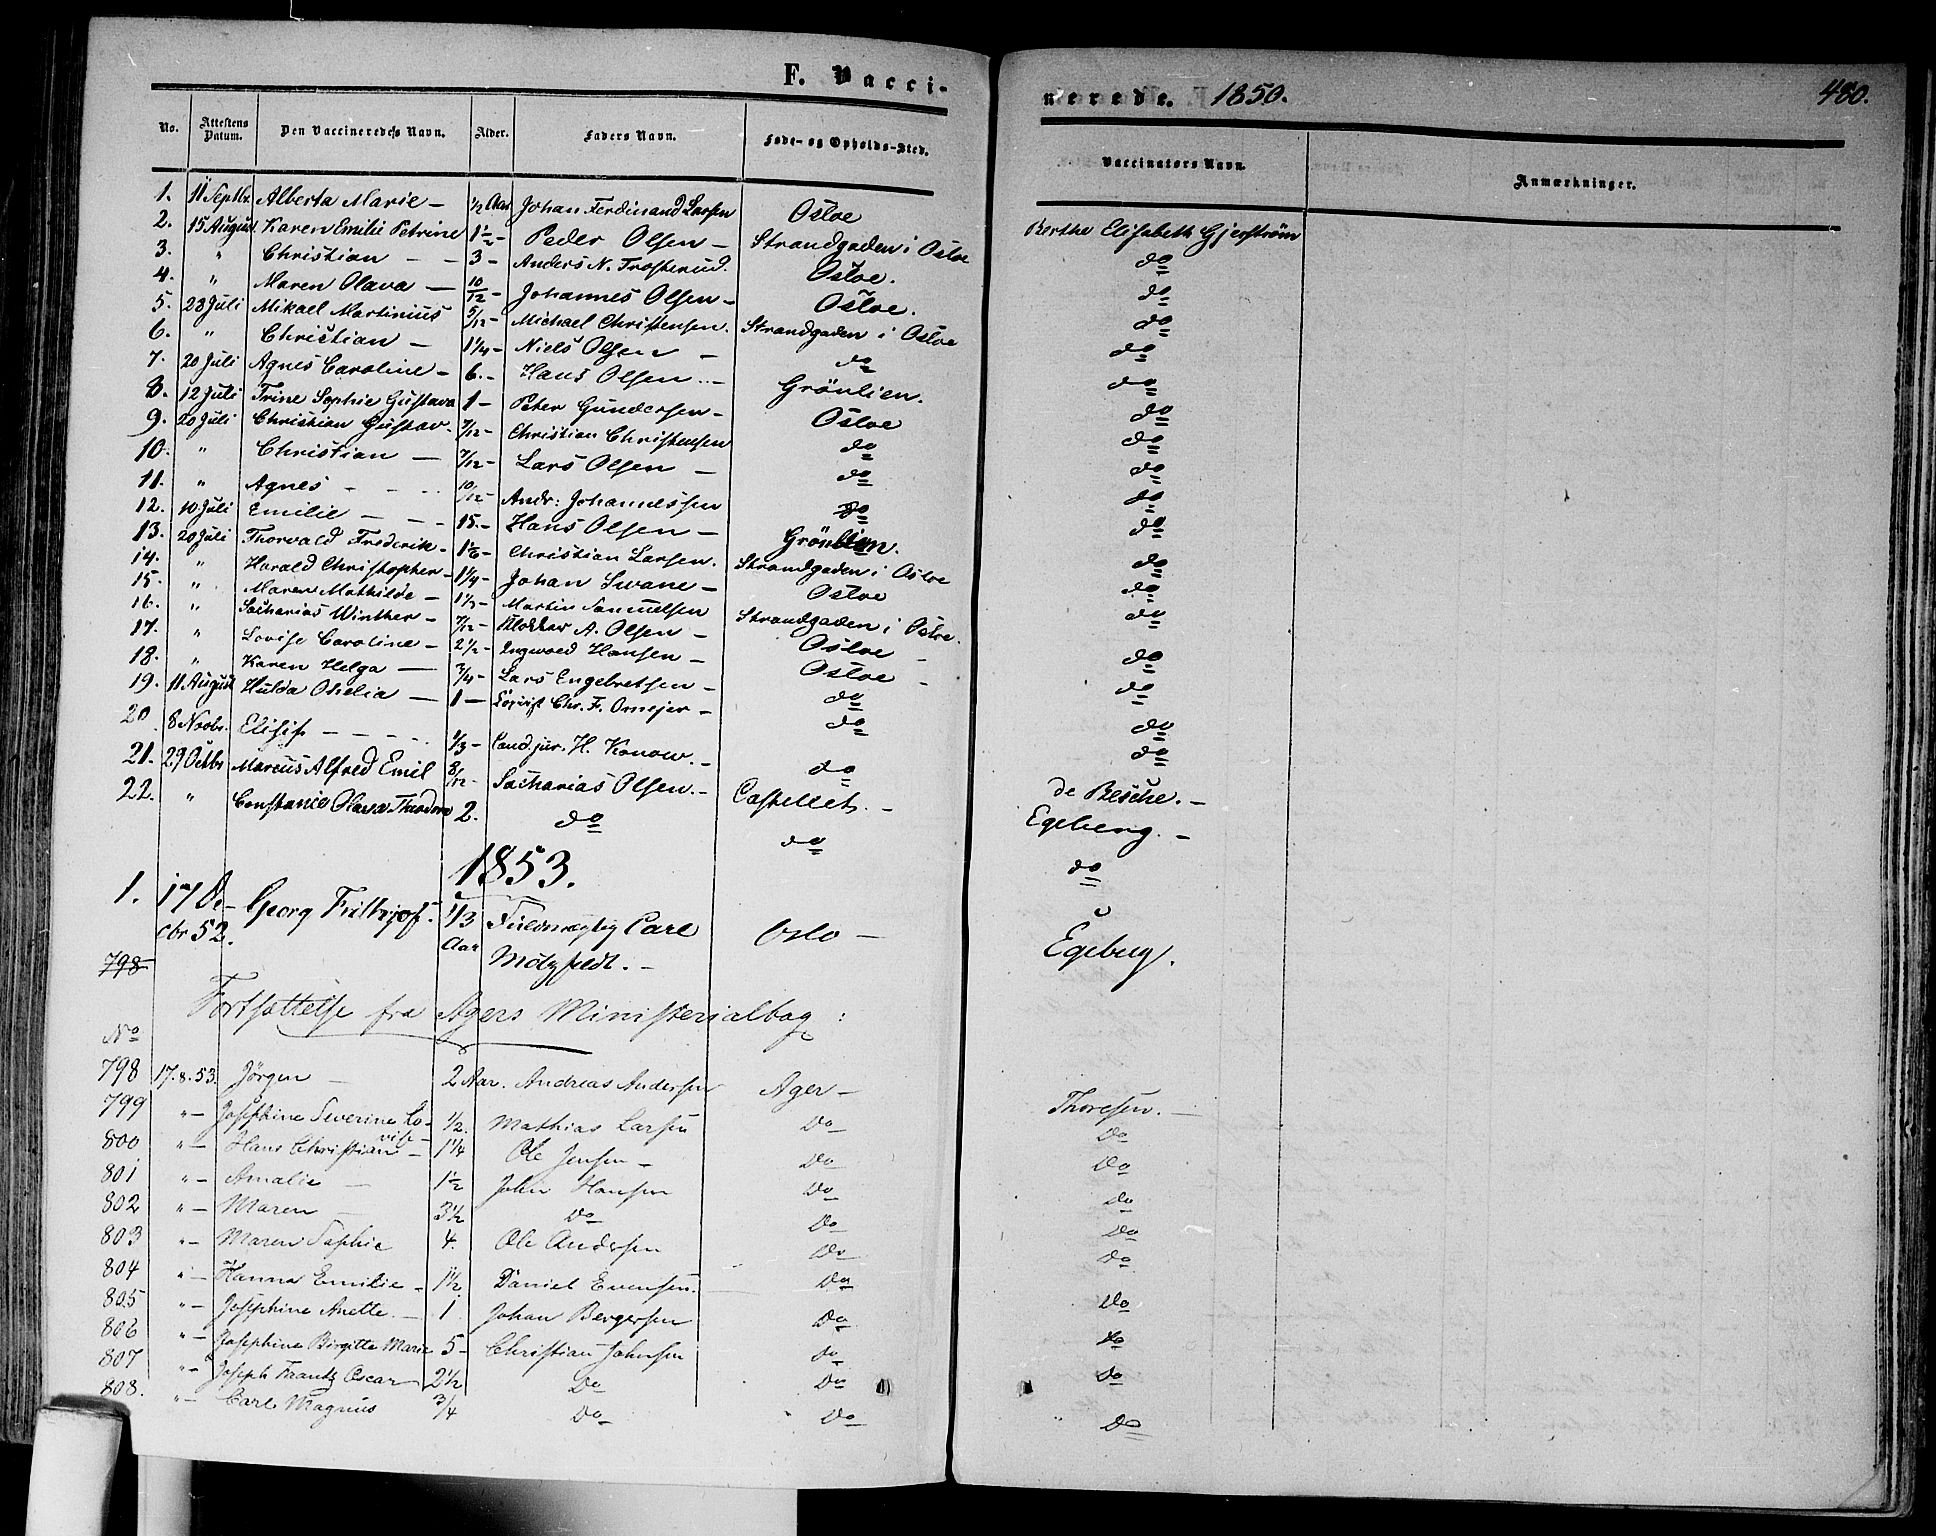 F. Vacci-
nerede. 1850. 480.
No. Attestens Datum. Den Vaccineredes Navn. Alder. Faders Navn. Føde- og Opholds-Sted. Vaccinators Navn. Anmærkninger.
1. 11 Septbr. Alberta Marie — 1/2 Aar Johan Ferdinand Larsen Osloe Berthe Elisabeth Gjerstrøm
2. 15 August Karen Emilie Petrine 1 1/2 — Peder Olsen — Strandgaden i Osloe do
3. " Christian — — 3 — Anders N. Trosterud. Osloe. do
4. " Maren Olava — 10/12 — Johannes Olsen — Osloe. do
5. 23 Juli Mikael Martinius 5/12 — Michael Christensen. Strandgaden i Osloe do
6. " Christian — 1 1/4 — Niels Olsen — do do
7. 20 Juli Agnes Caroline — 6. — Hans Olsen — Grönlien. do
8. 12 Juli Trine Sophie Gustava 1 — Peter Gundersen — Osloe do
9. 20 Juli Christian Gustav. 7/12 — Christian Christensen do do
10. " Christian — 7/12 — Lars Olsen — do do
11. " Agnes — 10/12 — Andr: Johannessen do do
12. 10 Juli Emilie — 15. — Hans Olsen — Grönlien. do
13. 20 Juli Thorvald Frederik — Christian Larsen. Strandgaden i Osloe do
14. " Harald Christopher — 1 1/4 — Johan Svane — Osloe do
15. " Maren Mathilde — 1 1/3 — Martin Samuelsen Strandgaden i Osloe. do
16. " Sacharias Winther — 7/12 — Klokker A. Olsen — Osloe — do
17. " Lovise Caroline — 2 1/2 — Ingvoed Hansen — Osloe — do
18. " Karen Helga — 3/4 — Lars Engebretsen — do do
19. 11 August Hulda Ofrelia — 1 — Chr. F. Omejer — do do
20. 8 Novbr. Elisif — — 1/3 — Cand. jur. H. Konow. — do de Besche. —
21. 29 Octbr Marcus Alfred Emil 8/12 — Sacharias Olsen. — Castellet. — Egeberg. —
22. " Constance Olava Theodora 2. do do do
1853.
1. 17 De- Georg Frithjof. 1/3 Fuldmægtig Carl Oslo — Egeberg.
cbr 52. Aar Motzfeldt. —
798
Fortsættelse fra Agers Ministerialbog:
No
798 17.8.53. Jörgen — 2 Aar. Andreas Andersen Ager — Thoresen. —
799 " — Josephine Severine Lo- 1/2. Mathias Larsen Do Do
vise —
800 " — Hans Christian — 1 1/4 Ole Jensen — Do Do
801 " — Amalie — 1 1/2 John Hansen Do Do
802 " — Maren — 3 1/2 Do Do Do
803 " — Maren Sophie 4. Ole Andersen Do Do
804 " — Hanna Emilie — 1 1/2. Daniel Evensen. Do Do
805 " — Josephine Anette. — 1 Johan Bergersen Do Do
806 " — Josephine Birgitte Marie 5 — Christian Johnsen Do Do
807 " — Joseph Frantz Oscar 2 1/2 Do Do Do
808. " — Carl Magnus 3/4 Do Do